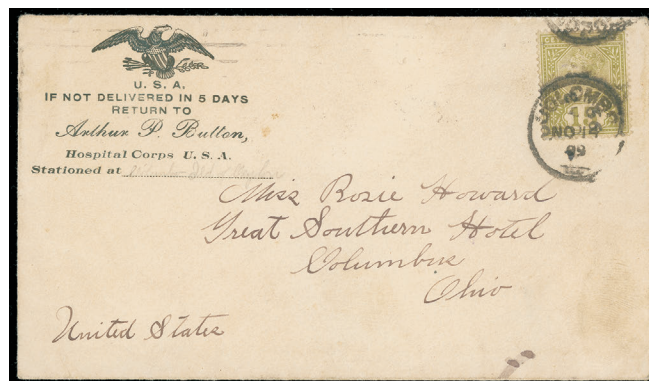 U. S. A.
IF NOT DELIVERED IN 5 DAYS
RETURN TO
Arthur P. Button,
Hospital Corps U. S. A.
Stationed at
Miss Rosie Howard
Great Southern Hotel
Columbus
Ohio
United States
15
NO 14
99